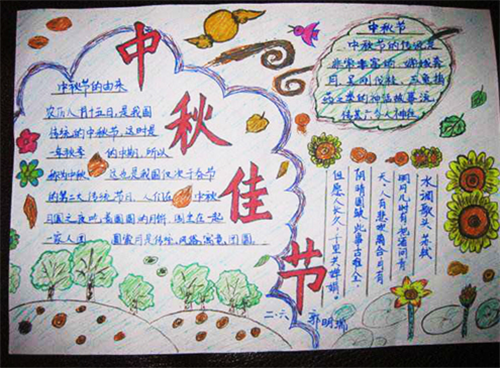 中秋佳节
中秋节的由来
农历八月十五日,是我国
传统的中秋节,这时是
一年秋季 的中期,所以
被称为中秋 这也是我国仅次于春节
的第二大传统节日,人们在 中秋
月圆之夜吃着圆圆的月饼,围坐在一起
一家人团 圆赏月是传统风俗,寓意团圆.
中秋节
中秋节的传说是
非常丰富的,嫦娥奔
月,吴刚伐桂,玉兔捣
药之类的神话故事流
传甚广令人神往
水调歌头 苏轼
明月几时有,把酒问青
天,人有悲欢离合,月有
阴晴圆缺,此事古难全,
但愿人长久,千里共婵娟.
二.六 郭明